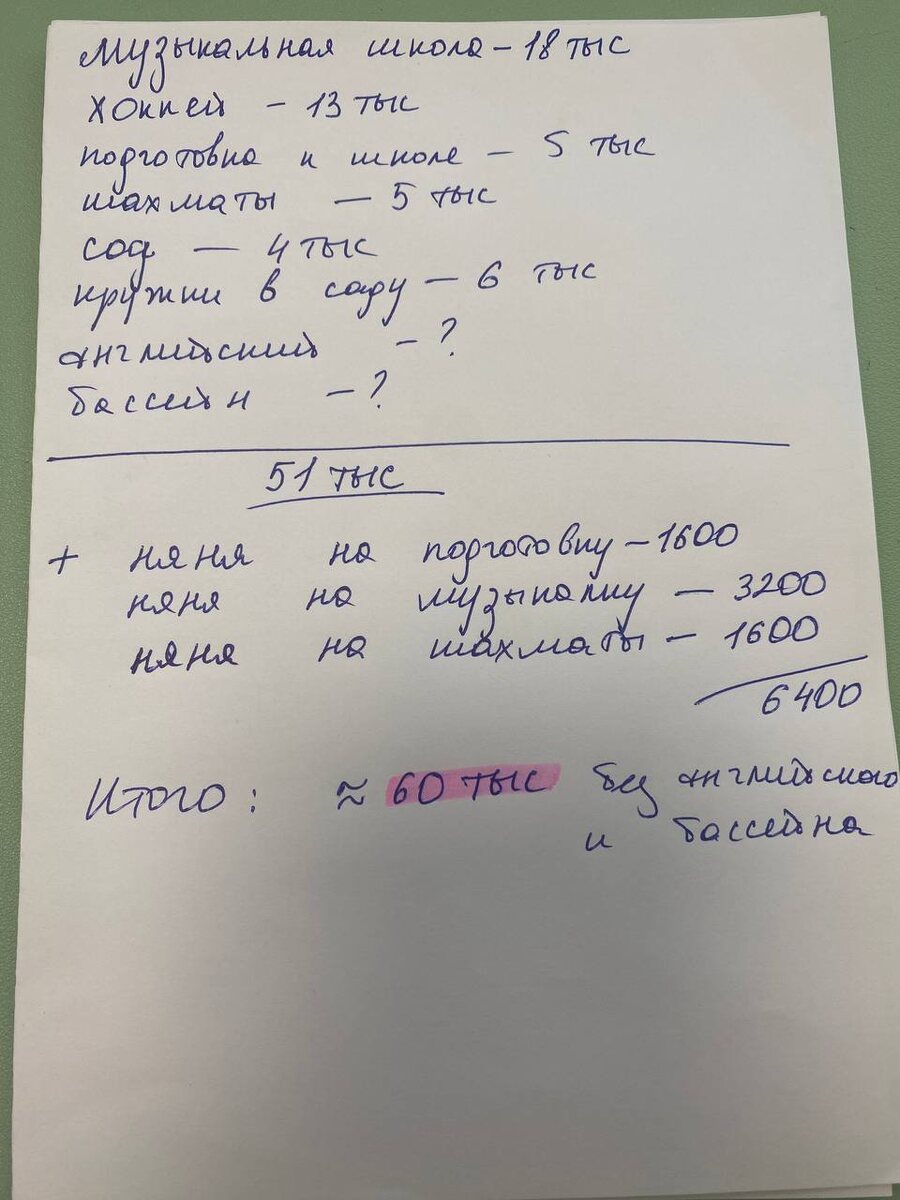 музыкальная школа – 18 тыс
хоккей – 13 тыс
подготовка к школе – 5 тыс
шахматы – 5 тыс
сад – 4 тыс
кружки в саду – 6 тыс
английский – ?
бассейн – ?
51 тыс
+ няня на подготовку – 1600
няня на музыкалку – 3200
няня на шахматы – 1600
6400
Итого: ≈ 60 тыс без английского
и бассейна